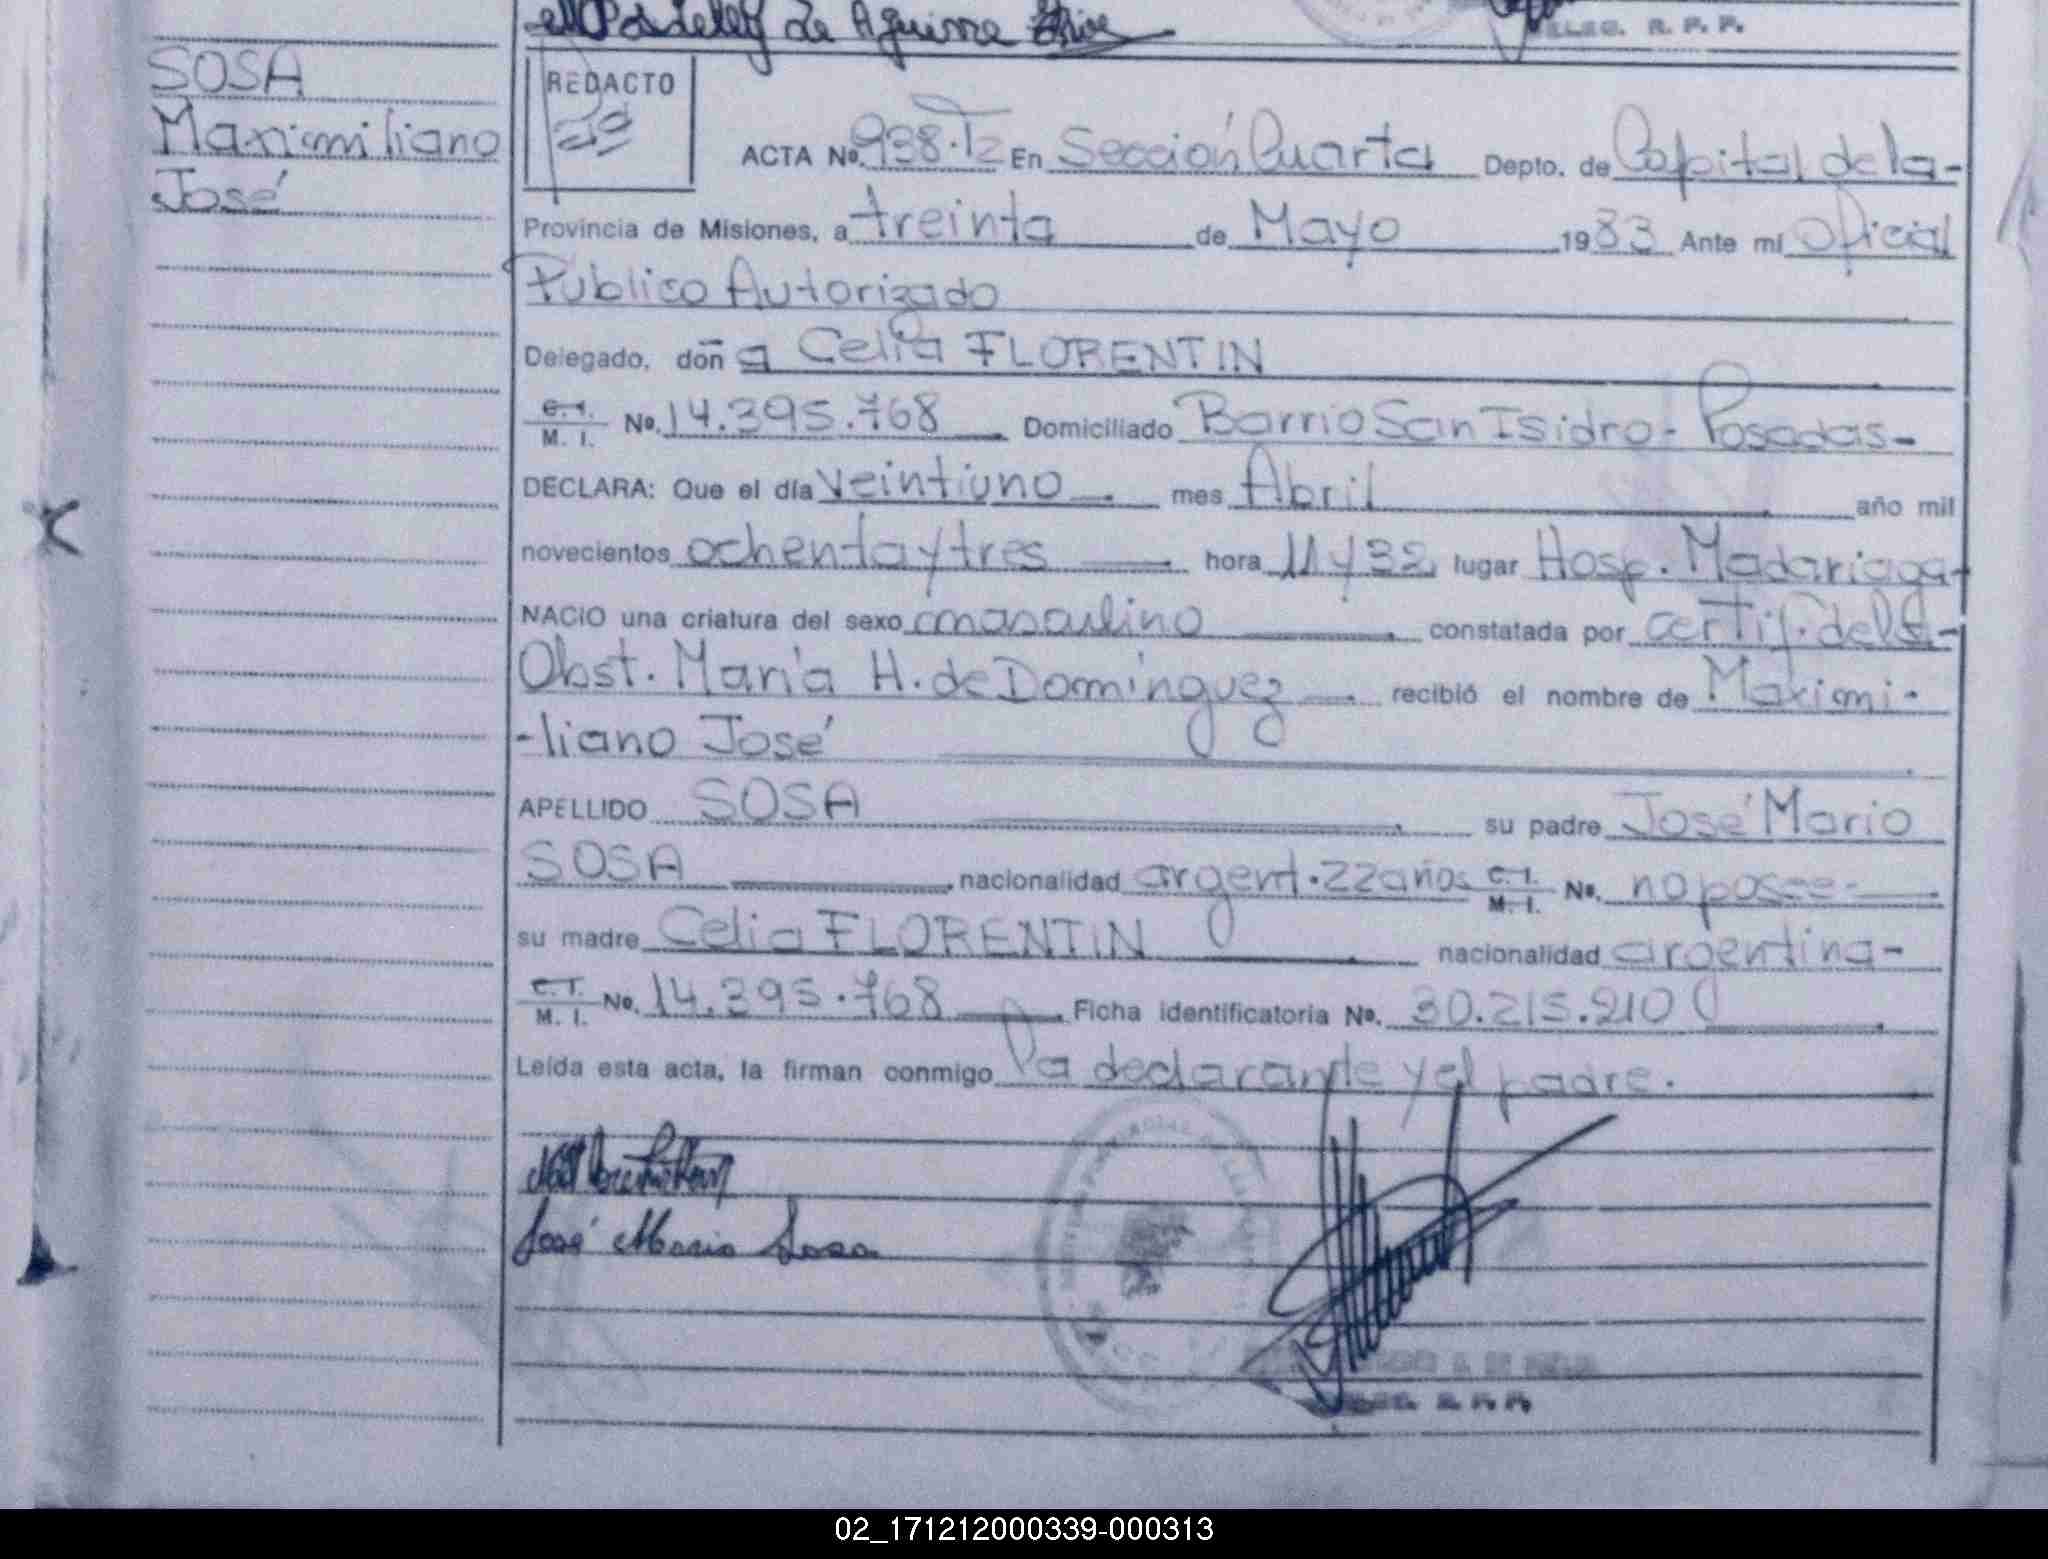 de Aguirre
DELEG. R. P. P.
SOSA
Maximiliano
José
REDACTO
ACTA Nº. 938·T2 En Sección Cuarta Depto. de Capital de la-
Provincia de Misiones, a treinta de Mayo 1983 Ante mí Oficial
Público Autorizado
Delegado, doña Celia FLORENTIN
C. I. M. I. Nº. 14.395.768 Domiciliado Barrio San Isidro- Posadas-
DECLARA: Que el día veintiuno mes Abril año mil
novecientos ochenta y tres hora 11 y 32 lugar Hosp. Madariaga-
NACIO una criatura del sexo masculino constatada por certif. de la-
Obst. María H. de Domínguez recibió el nombre de Maximi-
-liano José
APELLIDO SOSA su padre José Mario
SOSA nacionalidad argent. 22 años C. I. M. I. Nº. no posee-
su madre Celia FLORENTIN nacionalidad argentina-
C. I. M. I. Nº. 14.395.768 Ficha identificatoria Nº. 30.215.210
Leída esta acta, la firman conmigo la declarante y el padre.
José Mario Sosa
R. P. P.
02_171212000339-000313